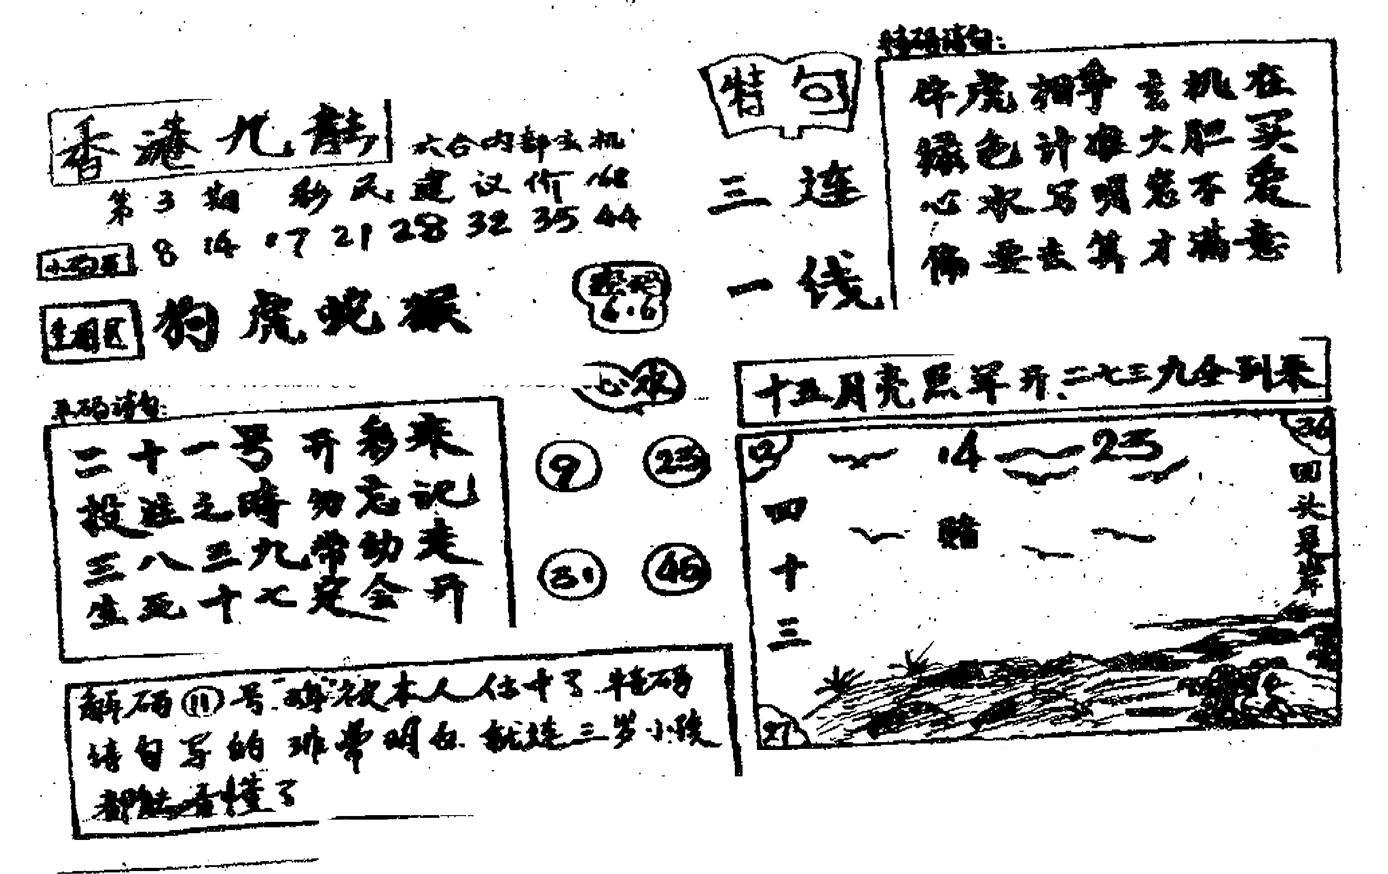 香港九龍
六合内部玄机
第3期 彩民建议价 168
8 14 17 21 28 32 35 44
狗虎蛇猴
6.6
心水
9 23
31 46
平码诗句:
二十一号开彩来
投注之時勿忘记
三八三九常动走
生死十七定会开
解码(11)号.难被本人估中了.特码
诗句写的非常明白.就连三岁小孩
都能看懂了
特句
三连
一线
特码诗句:
牛虎相争玄机在
绿色计准大胆买
心水写明您不爱
偏要去算才满意
十五月亮照单开.二七三九全到来
12 14 23 36
四十三
赌
回头是岸
27